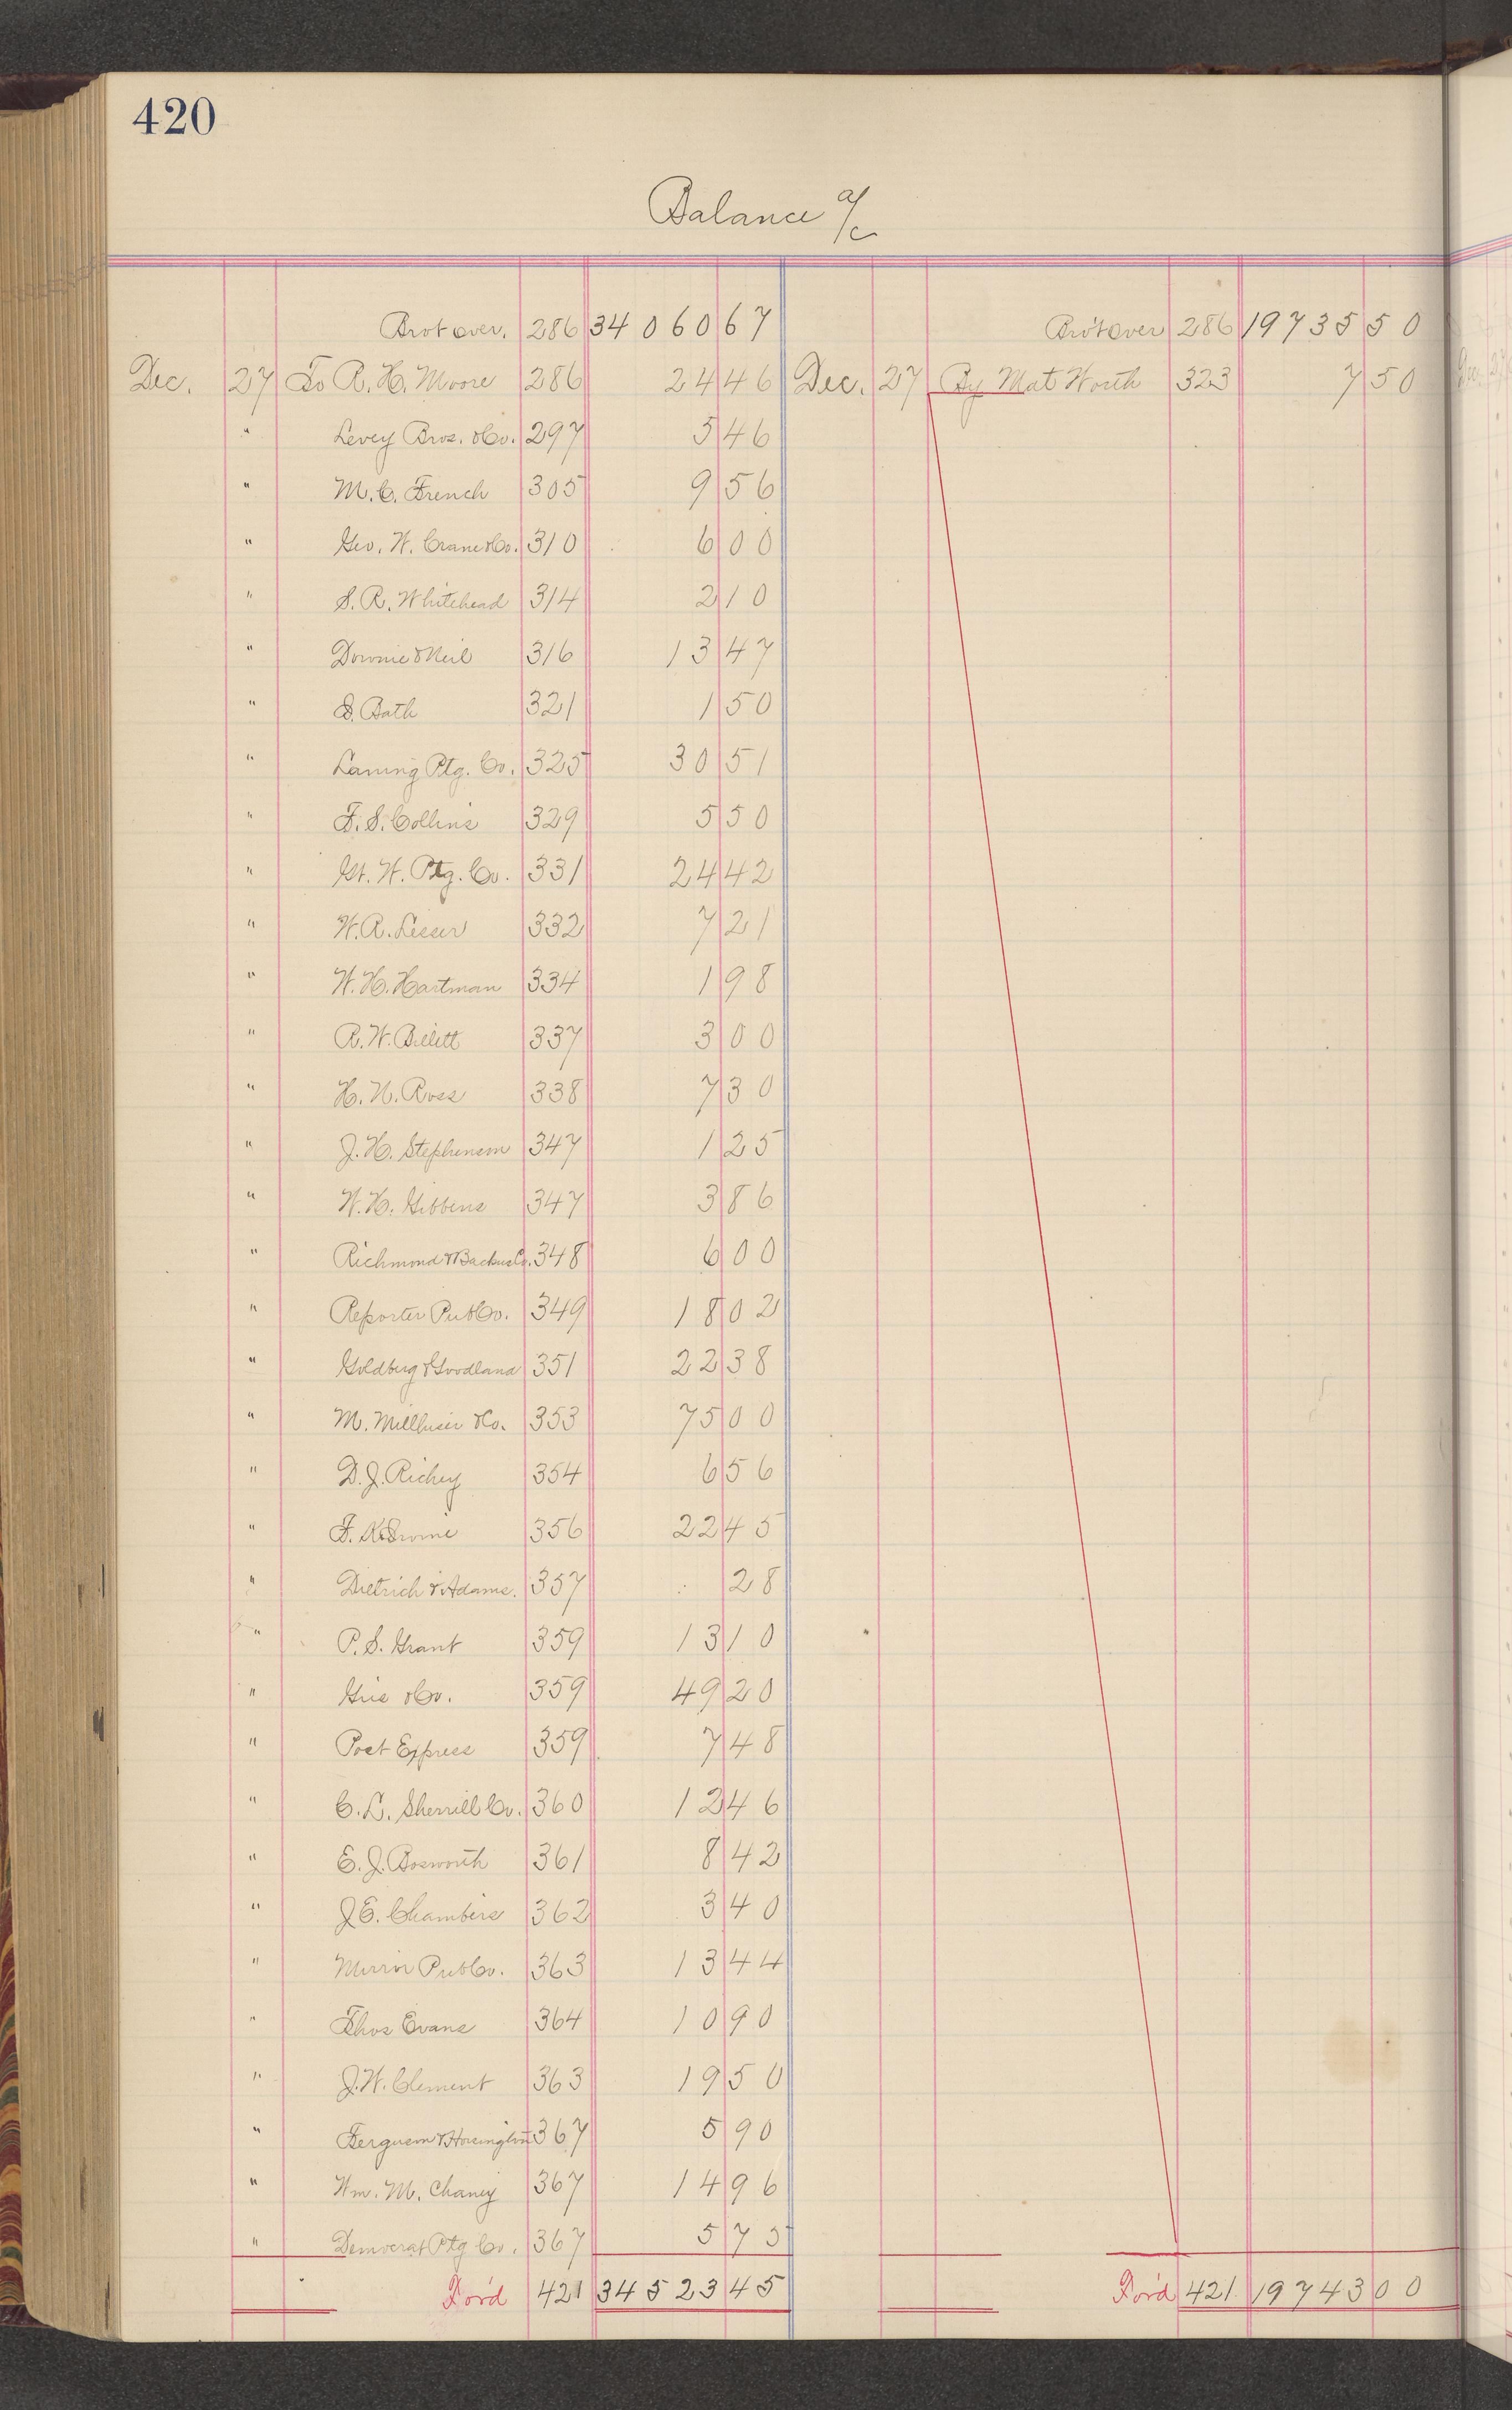 420
Balance a/c
Brot over. 286 34 060 67 Brot over 286 19 735 50
Dec. 27 To R. H. Moore 286 24 46 Dec. 27 By Mat Worth 323 7 50
" Levey Bros. & Co. 297 5 46
" M. C. French 305 9 56
" Geo. W. Crane & Co. 310 6 00
" S. R. Whitehead 314 2 10
" Downie & Neil 316 13 47
" S. Bath 321 1 50
" Laning Ptg. Co. 325 30 51
" F. S. Collins 329 5 50
" Gt. W. Ptg. Co. 331 24 42
" W. R. Lesser 332 7 21
" W. H. Hartman 334 1 98
" R. W. Billett 337 3 00
" H. N. Ross 338 7 30
" J. H. Stephenson 347 1 25
" W. H. Gibbens 347 3 86
" Richmond & Backus Co. 348 6 00
" Reporter Pub Co. 349 18 02
" Goldberg & Goodland 351 22 38
" M. Millhiser & Co. 353 75 00
" D. J. Richey 354 6 56
" F. K. 356 22 45
" Dietrich & Adams. 357 28
" P. S. Grant 359 13 10
" & Co. 359 49 20
" Post Express 359 7 48
" C. L. Sherrill Co. 360 12 46
" E. J. Bosworth 361 8 42
" J. E. Chambers 362 3 40
" Mirror Pub Co. 363 13 44
" Thos Evans 364 10 90
" J. W. Clement 363 19 50
" Ferguson & Horsington 367 5 90
" Wm. M. Chaney 367 14 96
" Democrat Ptg Co. 367 5 75
For'd 421 34 523 45 For'd 421 19 743 00